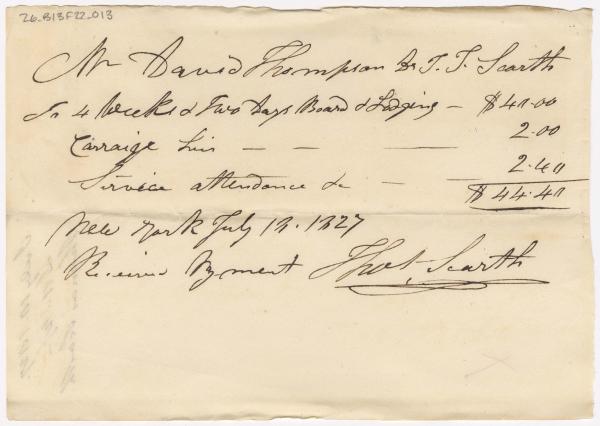 26-B13F22-013
Mr David Thompson Dr T. T. Scarth
To 4 Weeks & Two Days Board & Lodging — $40.00
Carraige hire — — — 2.00
Service attendance &c — — 2.40
$44.40
New York July 12. 1827
Received Payment Thos. Scarth